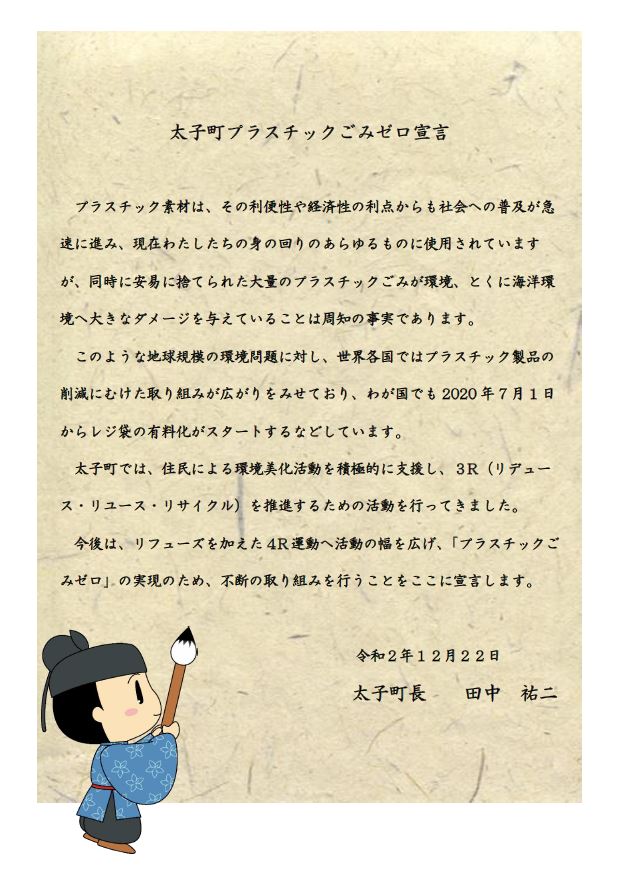 太子町プラスチックごみゼロ宣言
プラスチック素材は、その利便性や経済性の利点からも社会への普及が急
速に進み、現在わたしたちの身の回りのあらゆるものに使用されています
が、同時に安易に捨てられた大量のプラスチックごみが環境、とくに海洋環
境へ大きなダメージを与えていることは周知の事実であります。
このような地球規模の環境問題に対し、世界各国ではプラスチック製品の
削減にむけた取り組みが広がりをみせており、わが国でも2020年7月1日
からレジ袋の有料化がスタートするなどしています。
太子町では、住民による環境美化活動を積極的に支援し、3R（リデュー
ス・リユース・リサイクル）を推進するための活動を行ってきました。
今後は、リフューズを加えた4R運動へ活動の幅を広げ、「プラスチックご
みゼロ」の実現のため、不断の取り組みを行うことをここに宣言します。
令和2年12月22日
太子町長　田中　祐二